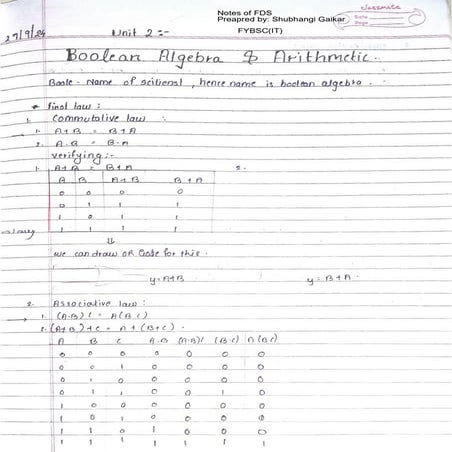 Notes of FDS
Preapred by: Shubhangi Gaikar
FYBSC(IT)
classmate
Date
Page
27/9/24
Unit 2:-
Boolean Algebra & Arithmetic.
Boole - Name of scitienst, hence name is boolean algebra.
* final law:
1. Commutative law:
1. A+B = B+A
2. A.B = B.A
verifying:-
1. A+B = B+A 2.
A B A+B B+A
0 0 0 0
0 1 1 1
1 0 1 1
1 1 1 1
⇓
we can draw OR Gate for this.
y=A+B y=B+A.
2. Associative law:
1. (A.B) C = A(B.C)
2. (A+B)+C = A+(B+C).
A B C A.B (A.B)C (B.C) A(B.C)
0 0 0 0 0 0 0
0 0 1 0 0 0 0
0 1 0 0 0 0 0
0 1 1 0 0 1 0
1 0 0 0 0 0 0
1 0 1 0 0 0 0
1 1 0 1 0 0 0
1 1 1 1 1 1 1